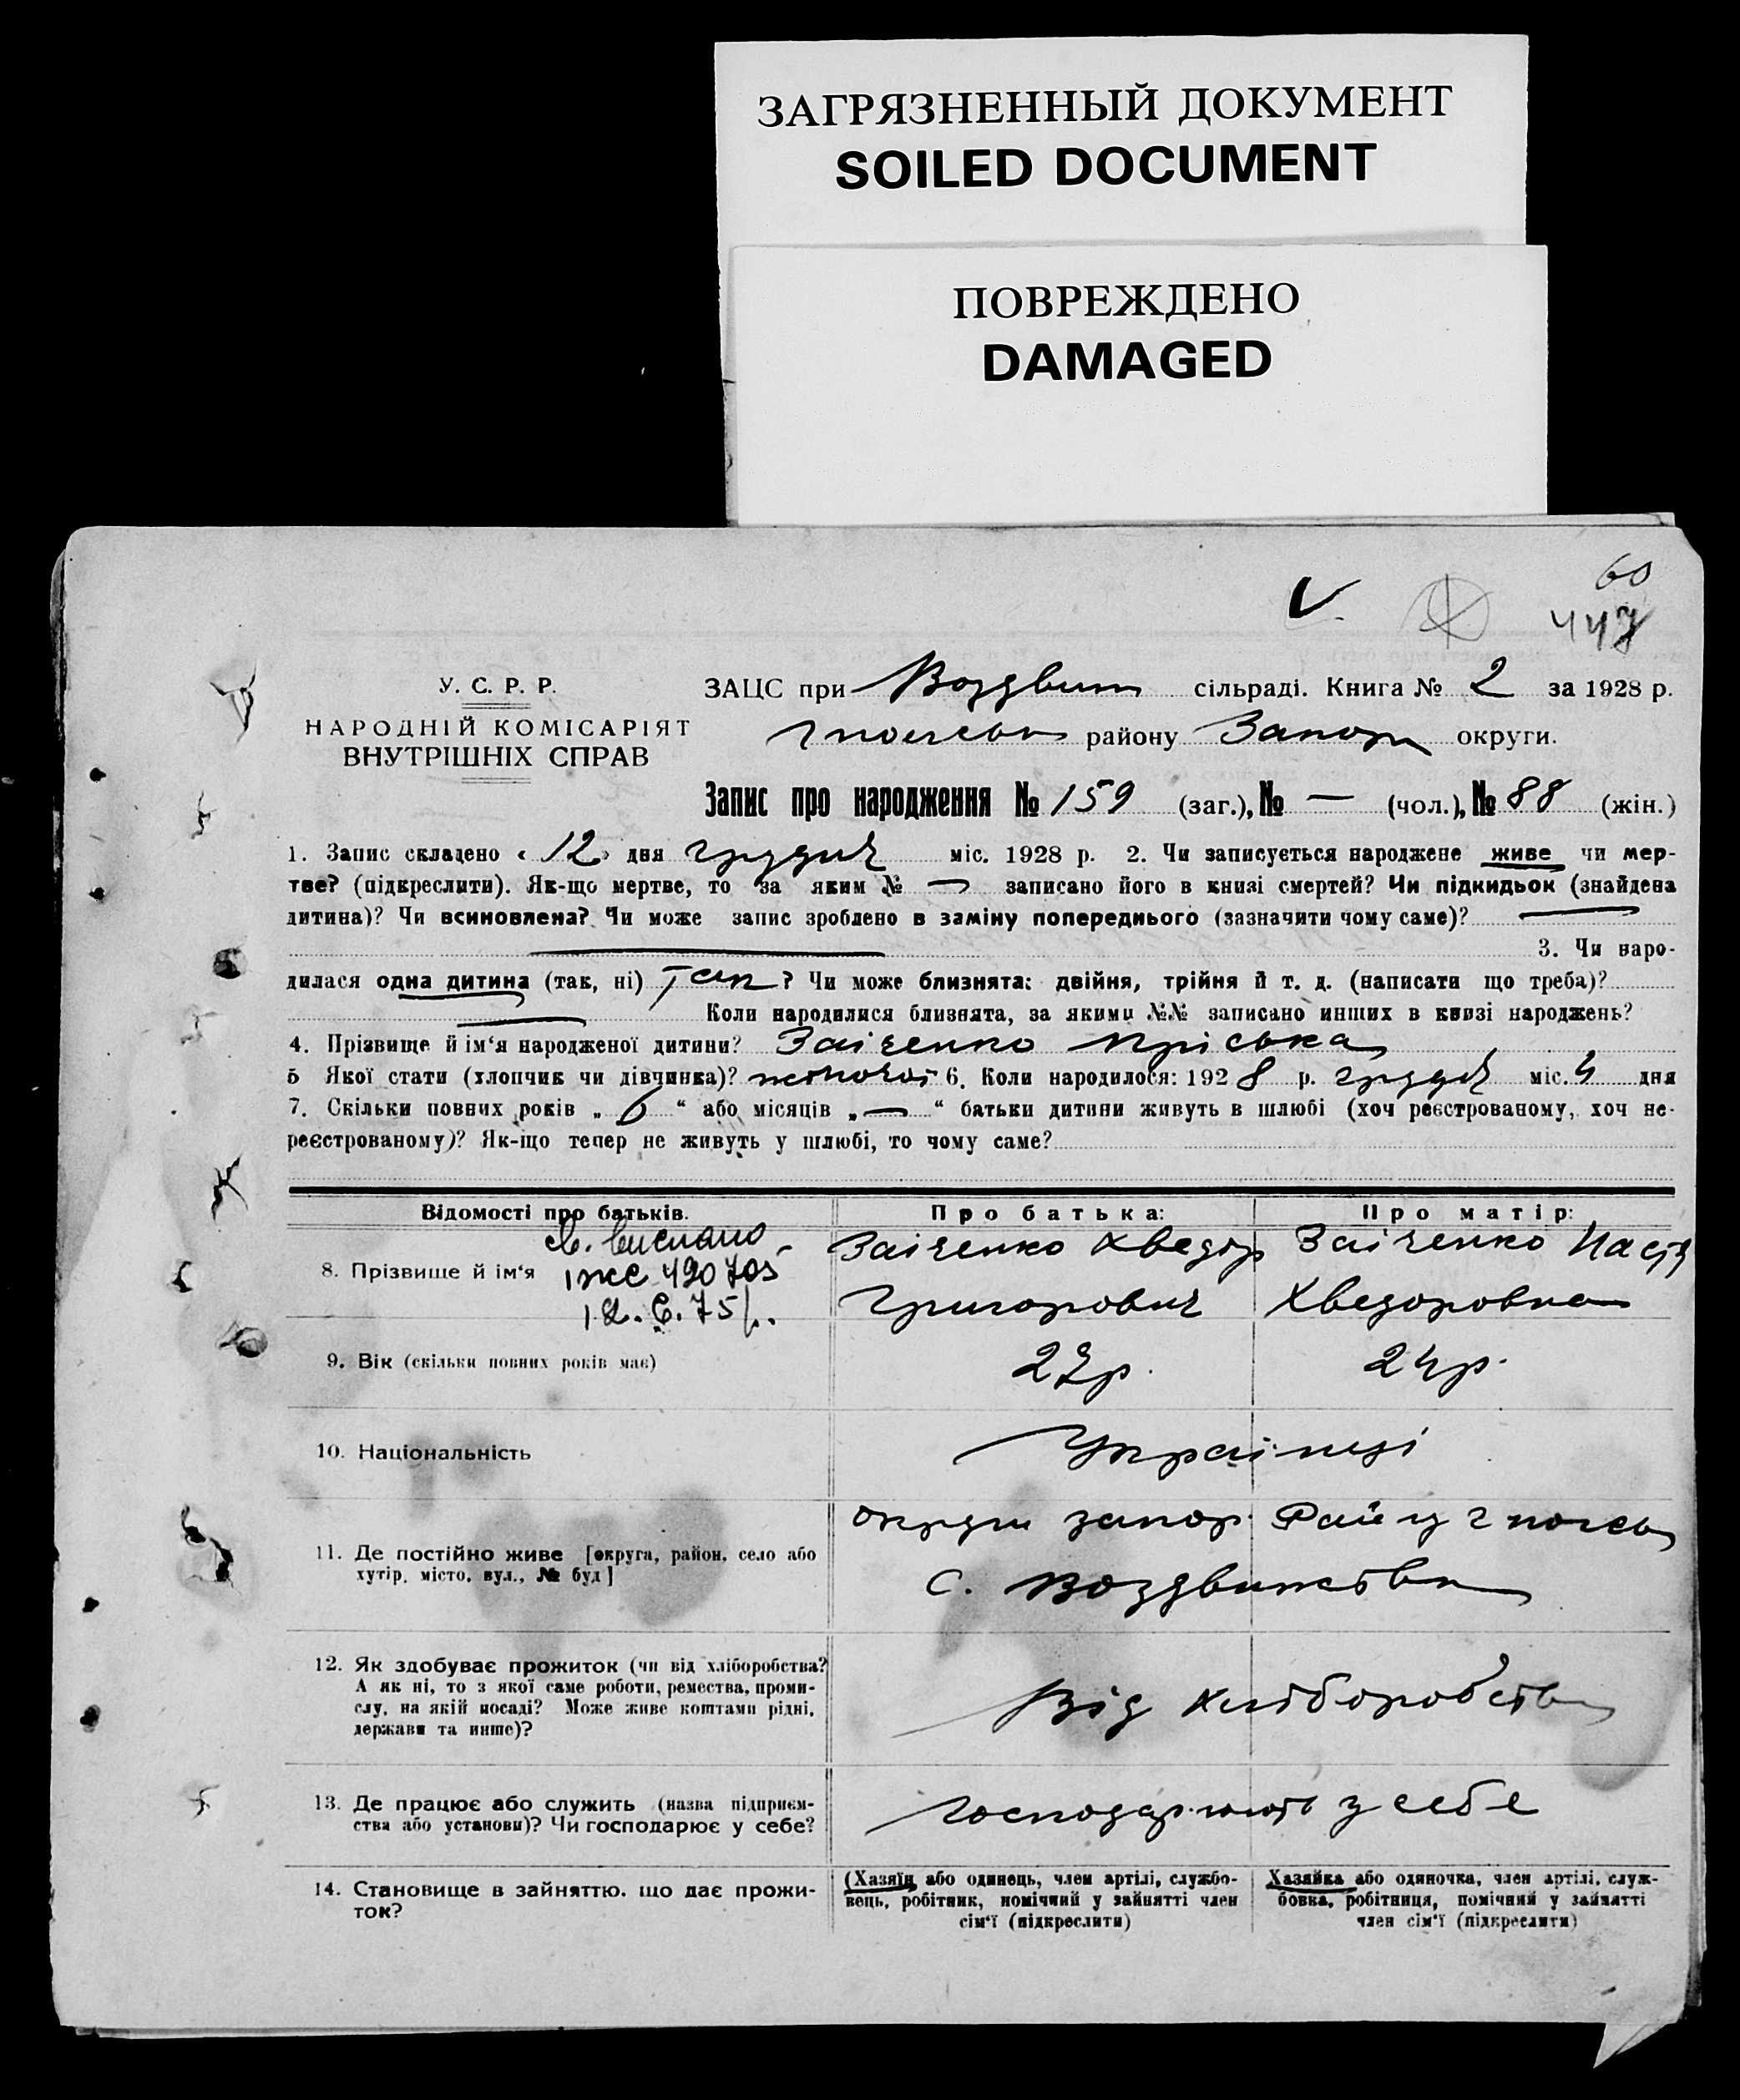 ЗАГРЯЗНЕННЫЙ ДОКУМЕНТ
SOILED DOCUMENT
ПОВРЕЖДЕНО
DAMAGED
60
447
У. С. Р. Р.
НАРОДНІЙ КОМІСАРІЯТ
ВНУТРІШНІХ СПРАВ
ЗАЦС при Воздвиж сільраді. Книга № 2 за 1928 р.
району Запор округи.
Запис про народження № 159 (заг.), № — (чол.), № 88 (жін.)
1. Запис складено « 12 » дня грудня міс. 1928 р. 2. Чи записується народжене живе чи мер-
тве? (підкреслити). Як-що мертве, то за яким № — записано його в книзі смертей? Чи підкидьок (знайдена
дитина)? Чи всиновлена? Чи може запис зроблено в заміну попереднього (зазначити чому саме)? —
— 3. Чи наро-
дилася одна дитина (так, ні) Так ? Чи може близнята: двійня, трійня й т. д. (написати що треба)?
— Коли народилися близнята, за якими №№ записано инших в книзі народжень?
4. Прізвище й ім‘я народженої дитини? Заіченко Пріська
5 Якої стати (хлопчик чи дівчинка)? жіночої 6. Коли народилося: 1928 р. грудня міс. 4 дня
7. Скільки повних років „ 6 “ або місяців „ — “ батьки дитини живуть в шлюбі (хоч реєстрованому, хоч не-
реєстрованому)? Як-що тепер не живуть у шлюбі, то чому саме?
Відомості про батьків.
Про батька:
Про матір:
8. Прізвище й ім‘я
св. виписано
ІЖС 490705
12. 6. 75 р.
Заіченко Хведор
Григорович
Заіченко Настя
Хведоровна
9. Вік (скільки повних років має)
27 р.
24 р.
10. Національність
Україниці
11. Де постійно живе [округа, район, село або
хутір, місто, вул., № буд]
округи запор. Району
с. Воздвижівка
12. Як здобуває прожиток (чи від хліборобства?
А як ні, то з якої саме роботи, ремества, проми-
слу, на якій посаді? Може живе коштами рідні,
держави та инше)?
Від хліборобства
13. Де працює або служить (назва підприєм-
ства або установи)? Чи господарює у себе?
господарюють у себе
14. Становище в зайняттю, що дає прожи-
ток?
(Хазяїн або одинець, член артілі, службо-
вець, робітник, помічний у зайнятті член
сім‘ї (підкреслити)
Хазяйка або одиночка, член артілі, служ-
бовка, робітниця, помічний у зайнятті
член сім‘ї (підкреслити)